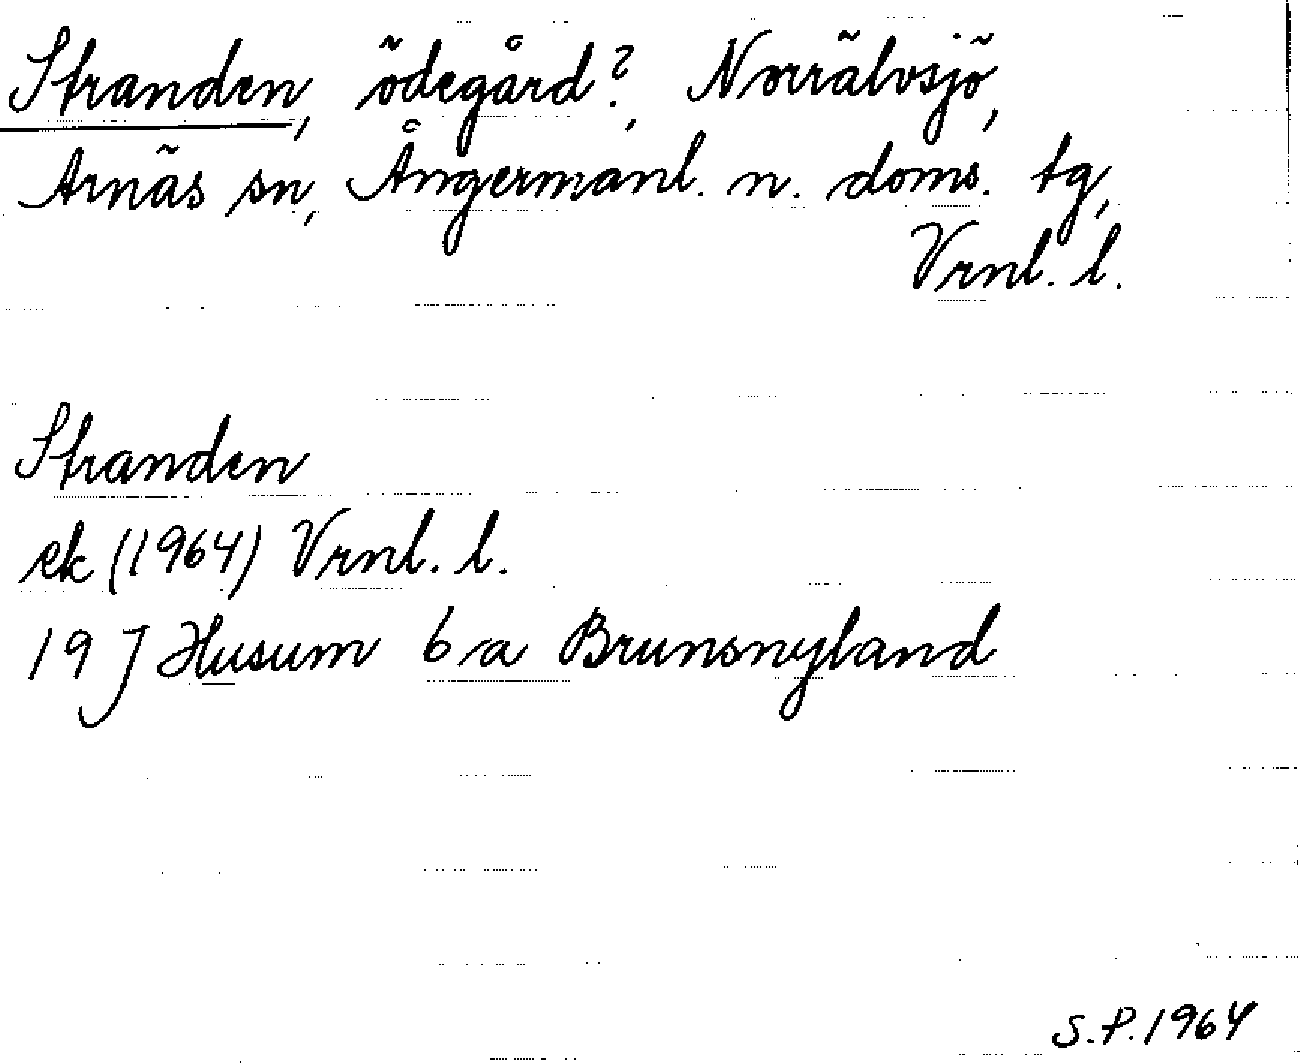 Stranden, ödegård?, Norrälvsjö,
Arnäs sn, Ångermanl. n. doms. tg,
Vrnl. l.
Stranden
ek (1964) Vrnl. l.
19 J Husum 6 a Brunsnyland
S.P. 1964